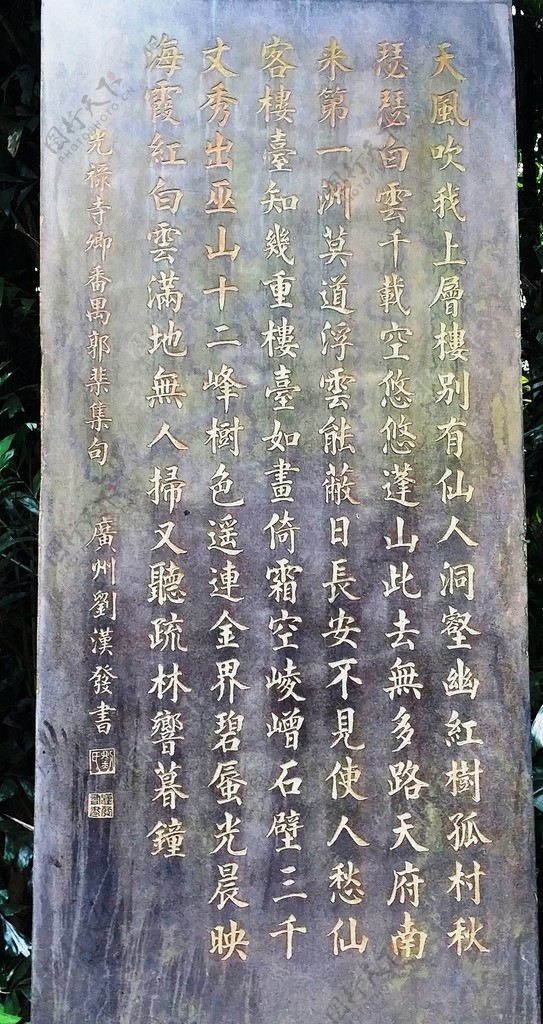 天風吹我上層樓別有仙人洞壑幽紅樹孤村秋
瑟瑟白雲千載空悠悠蓬山此去無多路天府南
来第一洲莫道浮雲能蔽日長安不見使人愁仙
客樓臺知幾重樓臺如畫倚霜空崚嶒石壁三千
丈秀出巫山十二峰樹色遥連金界碧蜃光晨映
海霞紅白雲滿地無人掃又聽疏林響暮鐘
光祿寺卿番禺郭棐集句
廣州劉漢發書